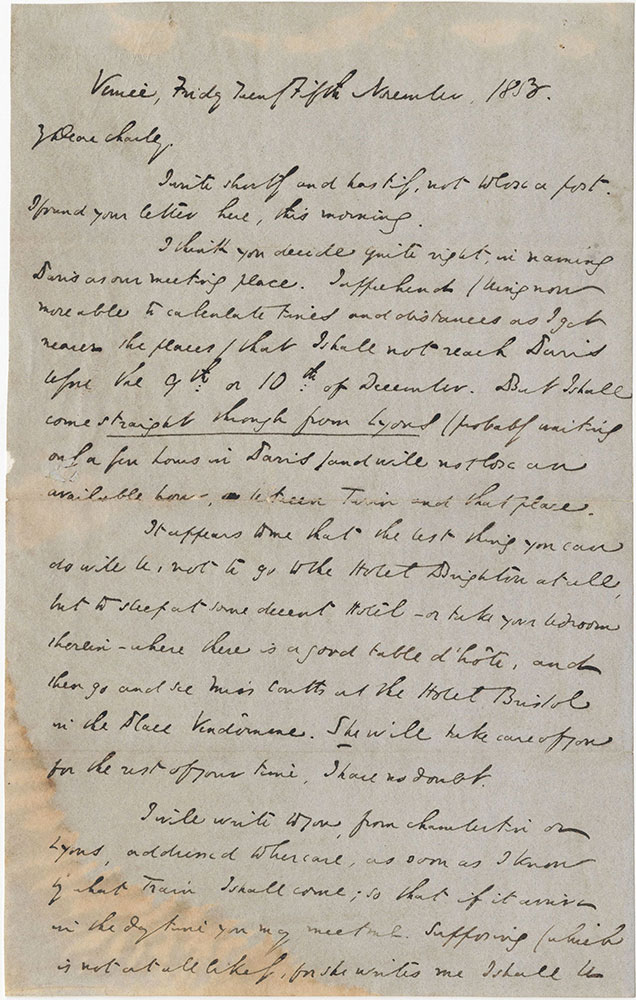 Venice, Friday Twenty Fifth November, 1853.
My Dear Charley.
I write shortly and hastily, not to lose a post.
I found your letter here, this morning.
I think you decide quite right, in naming
Paris as our meeting place. I apprehend (being now
more able to calculate times and distances as I get
nearer the places) that I shall not reach Paris
before the 9th. or 10th. of December. But I shall
come straight through from Lyons (probably waiting
only a few hours in Paris) and will not lose an
available hour, between Turin and that place.
It appears to me that the best thing you can
do will be, not to go to the Hotel Brighton at all,
but to sleep at some decent Hotel – or take your bedroom
therein – where there is a good table d'hôte, and
then go and see Miss Coutts at the Hotel Bristol
in the Place Vendôme. She will take care of you
for the rest of your time, I have no doubt.
I will write to you, from Chambery or
Lyons, addressed to her care, as soon as I know
by what Train I shall come; so that if it arrives
in the daytime you may meet me. Supposing (which
is not at all likely, for she writes me I shall be